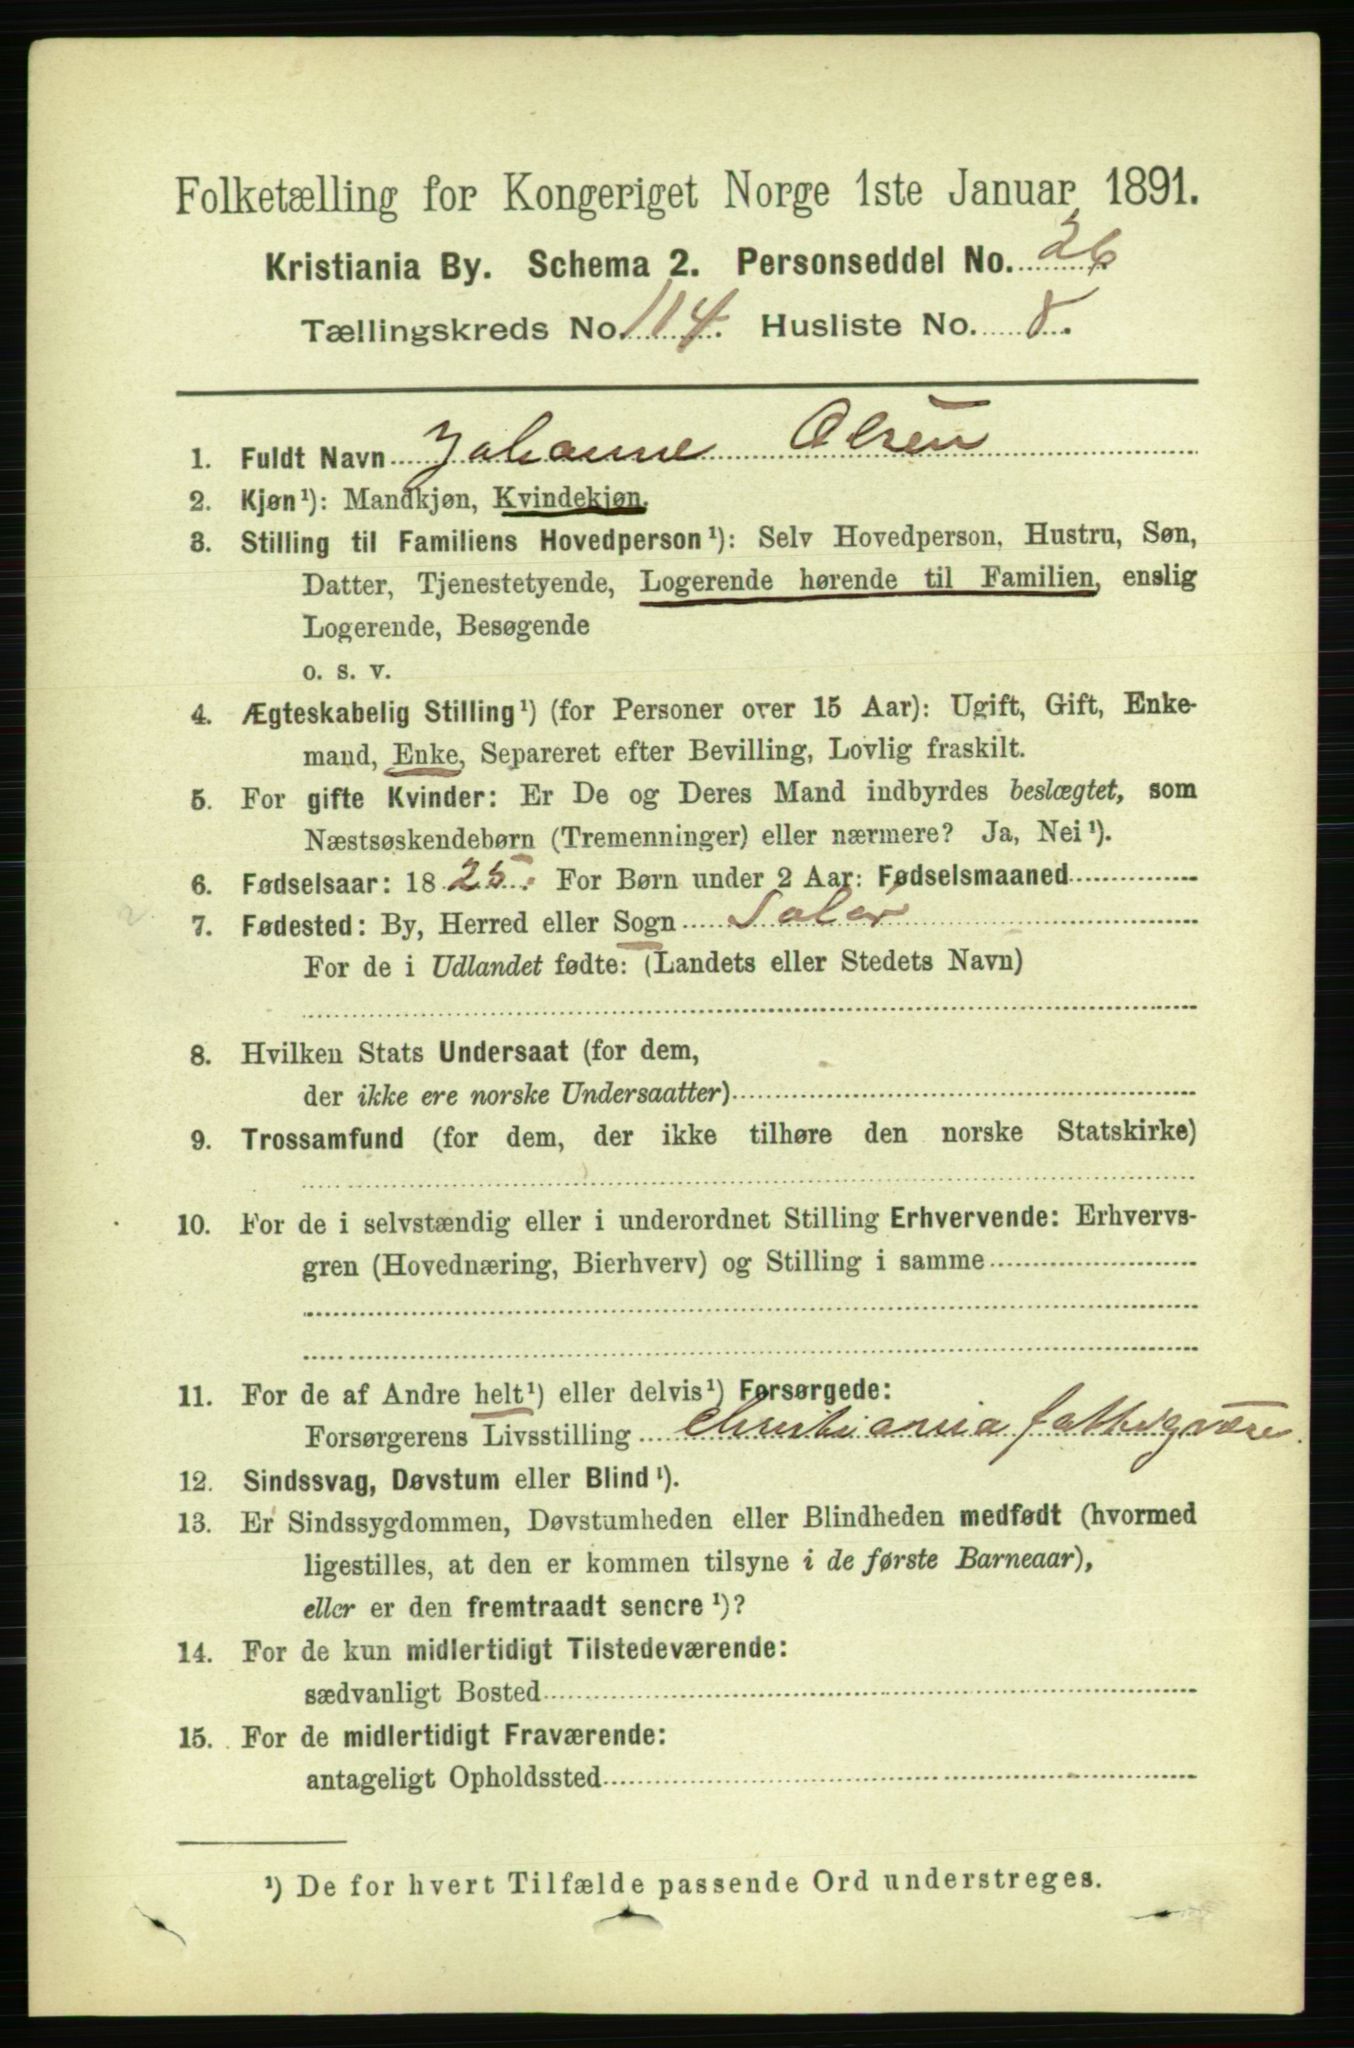 Folketælling for Kongeriget Norge 1ste Januar 1891.
Kristiania By. Schema 2. Personseddel No. 26
Tællingskreds No. 114. Husliste No. 8.
1. Fuldt Navn Johanne Olsen
2. Kjøn¹): Mandkjøn, Kvindekjøn.
3. Stilling til Familiens Hovedperson¹): Selv Hovedperson, Hustru, Søn,
Datter, Tjenestetyende, Logerende hørende til Familien, enslig
Logerende, Besøgende
o. s. v.
4. Ægteskabelig Stilling¹) (for Personer over 15 Aar): Ugift, Gift, Enke-
mand, Enke, Separeret efter Bevilling, Lovlig fraskilt.
5. For gifte Kvinder: Er De og Deres Mand indbyrdes beslægtet, som
Næstsøskendebørn (Tremenninger) eller nærmere? Ja, Nei¹).
6. Fødselsaar: 1825. For Børn under 2 Aar: Fødselsmaaned
7. Fødested: By, Herred eller Sogn Solør
For de i Udlandet fødte: (Landets eller Stedets Navn)
8. Hvilken Stats Undersaat (for dem,
der ikke ere norske Undersaatter)
9. Trossamfund (for dem, der ikke tilhøre den norske Statskirke)
10. For de i selvstændig eller i underordnet Stilling Erhvervende: Erhvervs-
gren (Hovednæring, Bierhverv) og Stilling i samme
11. For de af Andre helt¹) eller delvis¹) Forsørgede:
Forsørgerens Livsstilling Christiania fattigvæse
12. Sindssvag, Døvstum eller Blind¹).
13. Er Sindssygdommen, Døvstumheden eller Blindheden medfødt (hvormed
ligestilles, at den er kommen tilsyne i de første Barneaar),
eller er den fremtraadt senere¹)?
14. For de kun midlertidigt Tilstedeværende:
sædvanligt Bosted
15. For de midlertidigt Fraværende:
antageligt Opholdssted
¹) De for hvert Tilfælde passende Ord understreges.